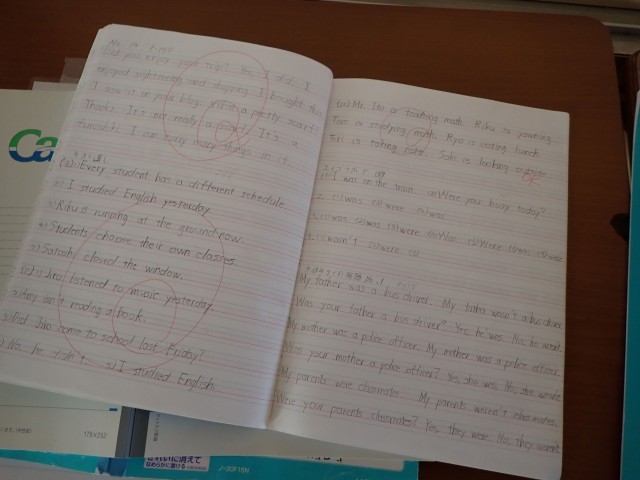 Did you enjoy your trip? Yes, I did. I
enjoyed sightseeing and shopping. I bought this
I saw it on your blog. What a pretty scarf!
Thanks. It's not really a scarf. It's a
furoshiki. I can carry many things in it.
Every student has a different schedule
I studied English yesterday.
Riku is running at the ground now.
Students choose their own classes
Sarah closed the window.
Jiro listened to music yesterday.
Amy isn't reading a book.
Did Jiro come to school last Friday?
No, he didn't. I studied English.
Mr. Ito is teaching math. Riku is painting
Tom is studying math. Ryo is eating lunch.
Teri is taking Saki is looking
was on the train. Were you busy today?
was were was
was was were Was Were was were
wasn't were
My father was a bus driver. My father wasn't a bus driver
Was your father a bus driver? Yes, he was. No, he wasn't
My mother was a police officer. My mother was a police officer.
Was your mother a police officer? Yes, she was. No, she wasn't
My parents were classmates. My parents weren't classmates.
Were your parents classmates? Yes, they were. No, they weren't
Ca
179×252
ノ-30F15N